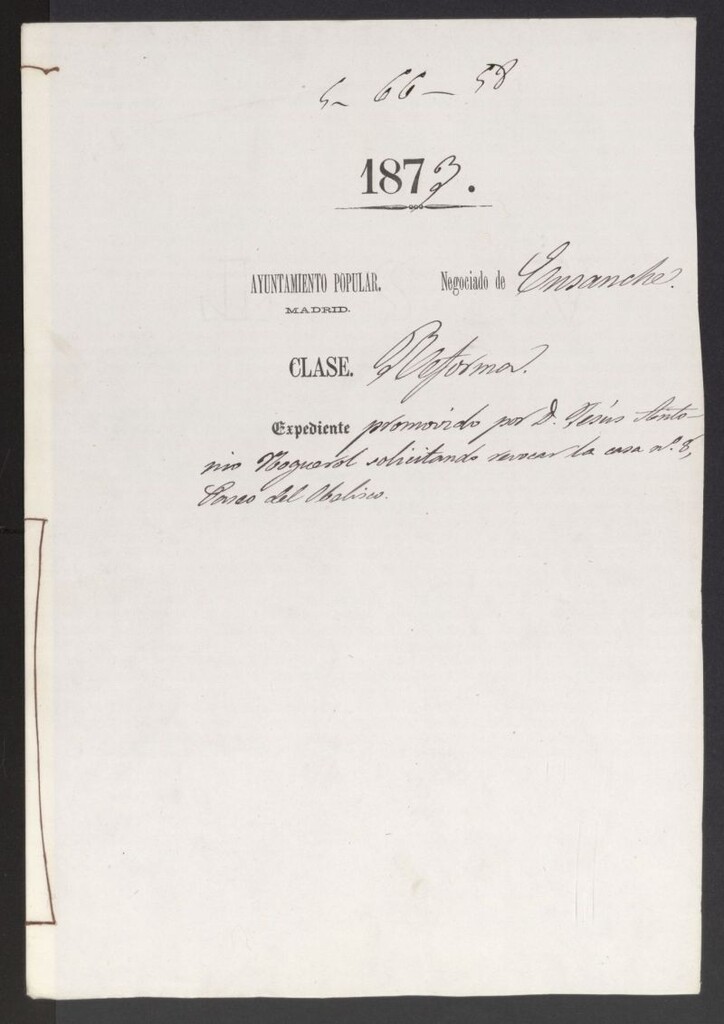 5- 66 - 58
1873.
AYUNTAMIENTO POPULAR. Negociado de Ensanche.
MADRID.
CLASE. Reforma.
Expediente promovido por D. Jesús Anto-
nio Noguerol solicitando revocar la casa nº. 8,
Paseo del Obelisco.